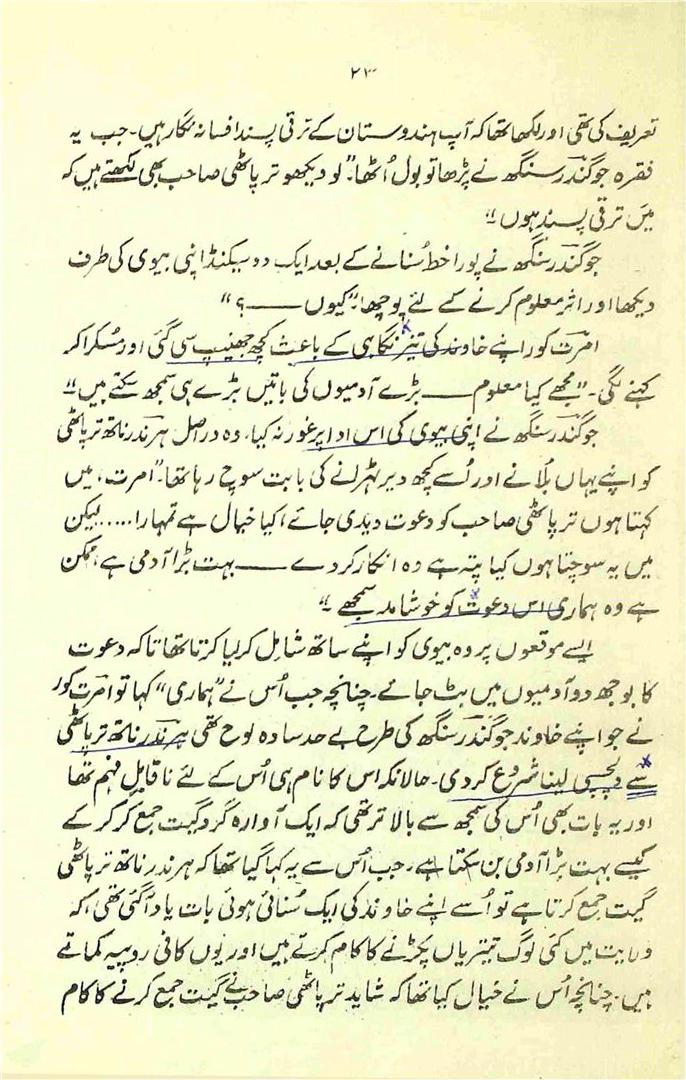 ۲۳
تعریف کی تھی اور لکھا تھا کہ آپ ہندوستان کے ترقی پسند افسانہ نگار ہیں۔ جب یہ
فقرہ جوگندر سنگھ نے پڑھا تو بول اُٹھا۔ "لو دیکھو ترپاٹھی صاحب بھی لکھتے ہیں کہ
میں ترقی پسند ہوں"
جوگندر سنگھ نے پورا خط سُنانے کے بعد ایک دو سیکنڈ اپنی بیوی کی طرف
دیکھا اور اثر معلوم کرنے کے لئے پوچھا: "کیوں ——؟"
امرت کور اپنے خاوند کی تیز نگاہی کے باعث کچھ جھینپ سی گئی اور مُسکرا کر
کہنے لگی۔ "مجھے کیا معلوم —— بڑے آدمیوں کی باتیں بڑے ہی سمجھ سکتے ہیں"
جوگندر سنگھ نے اپنی بیوی کی اس ادا پر غور نہ کیا، وہ دراصل ہرندر ناتھ ترپاٹھی
کو اپنے یہاں بُلانے اور اُسے کچھ دیر ٹھہرانے کی بابت سوچ رہا تھا۔ "امرت، میں
کہتا ہوں ترپاٹھی صاحب کو دعوت دیدی جائے، کیا خیال ہے تمہارا..... لیکن
میں یہ سوچتا ہوں کیا پتہ ہے وہ انکار کر دے —— بہت بڑا آدمی ہے، ممکن
ہے وہ ہماری اس دعوت کو خوشامد سمجھے۔"
ایسے موقعوں پر وہ بیوی کو اپنے ساتھ شامل کر لیا کرتا تھا تاکہ دعوت
کا بوجھ دو آدمیوں میں بٹ جائے۔ چنانچہ جب اُس نے "ہماری" کہا تو امرت کور
نے جو اپنے خاوند جوگندر سنگھ کی طرح بے حد سادہ لوح تھی ہرندر ناتھ ترپاٹھی
سے دلچسپی لینا شروع کر دی۔ حالانکہ اس کا نام ہی اُس کے لئے ناقابلِ فہم تھا
اور یہ بات بھی اُس کی سمجھ سے بالاتر تھی کہ ایک آوارہ گرد گیت جمع کر کر کے
کیسے بہت بڑا آدمی بن سکتا ہے۔ جب اُس سے یہ کہا گیا تھا کہ ہرندر ناتھ ترپاٹھی
گیت جمع کرتا ہے تو اُسے اپنے خاوند کی ایک سُنائی ہوئی بات یاد آ گئی تھی، کہ
ولایت میں کئی لوگ تیتریاں پکڑنے کا کام کرتے ہیں اور یوں کافی روپیہ کماتے
ہیں۔ چنانچہ اُس نے خیال کیا تھا کہ شاید ترپاٹھی صاحب نے گیت جمع کرنے کا کام